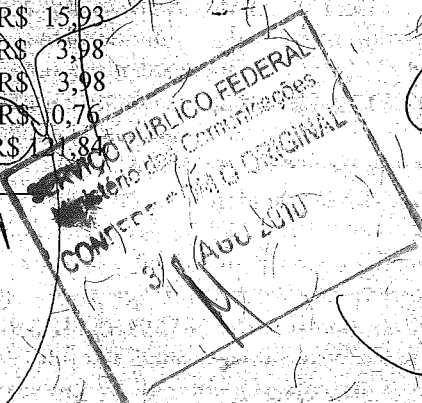 R$ 15,93
R$ 3,98
R$ 3,98
R$ 0,76
R$ 121,84
SERVIÇO PÚBLICO FEDERAL
Ministério das Comunicações
CONFERE COM O ORIGINAL
31 AGO 2010